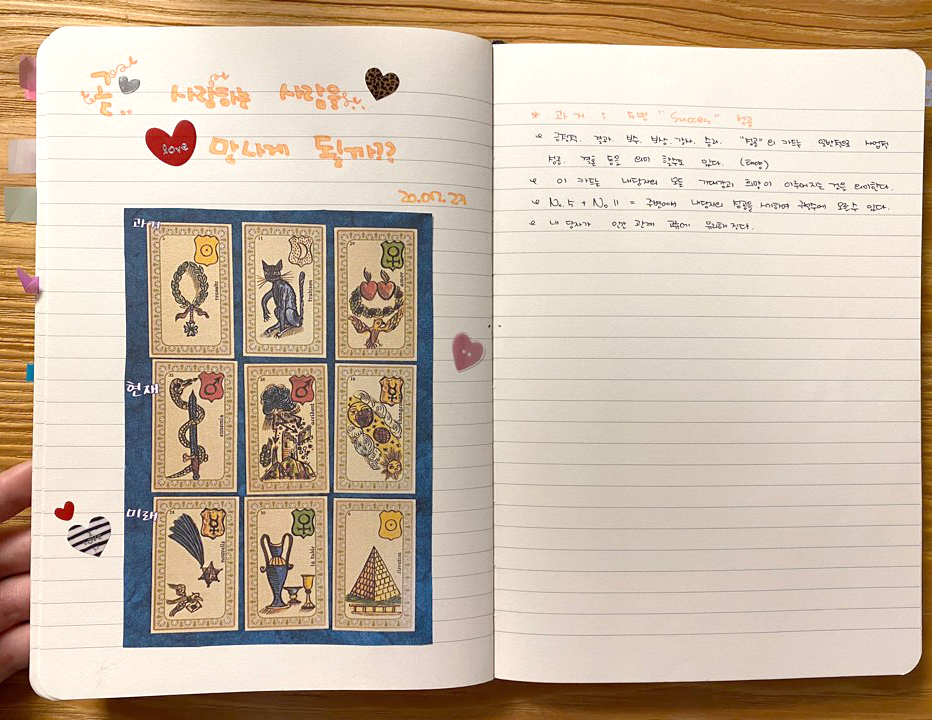 곧 사랑하는 사람을
love
만나게 될까??
20.07.23
과거
5
reussite
11
trahison
29
amour
현재
ennemis
accident
changement
미래
nouvelle
30
la table
elevation
* 과거 : 5번 "Success" 성공
긍정적. 결과. 보수. 보상. 감사. 승리. "성공"의 카드는 일반적으로 사업적
성공. 결혼 등을 의미 할수도 있다. (태양)
이 카드는 내담자의 모든 기대감과 희망이 이루어지는 것을 의미한다.
No. 5 + No 11 = 주변에서 내담자의 성공을 시기하여 구설수에 오를 수 있다.
내담자가 인간 관계 때문에 해진다.